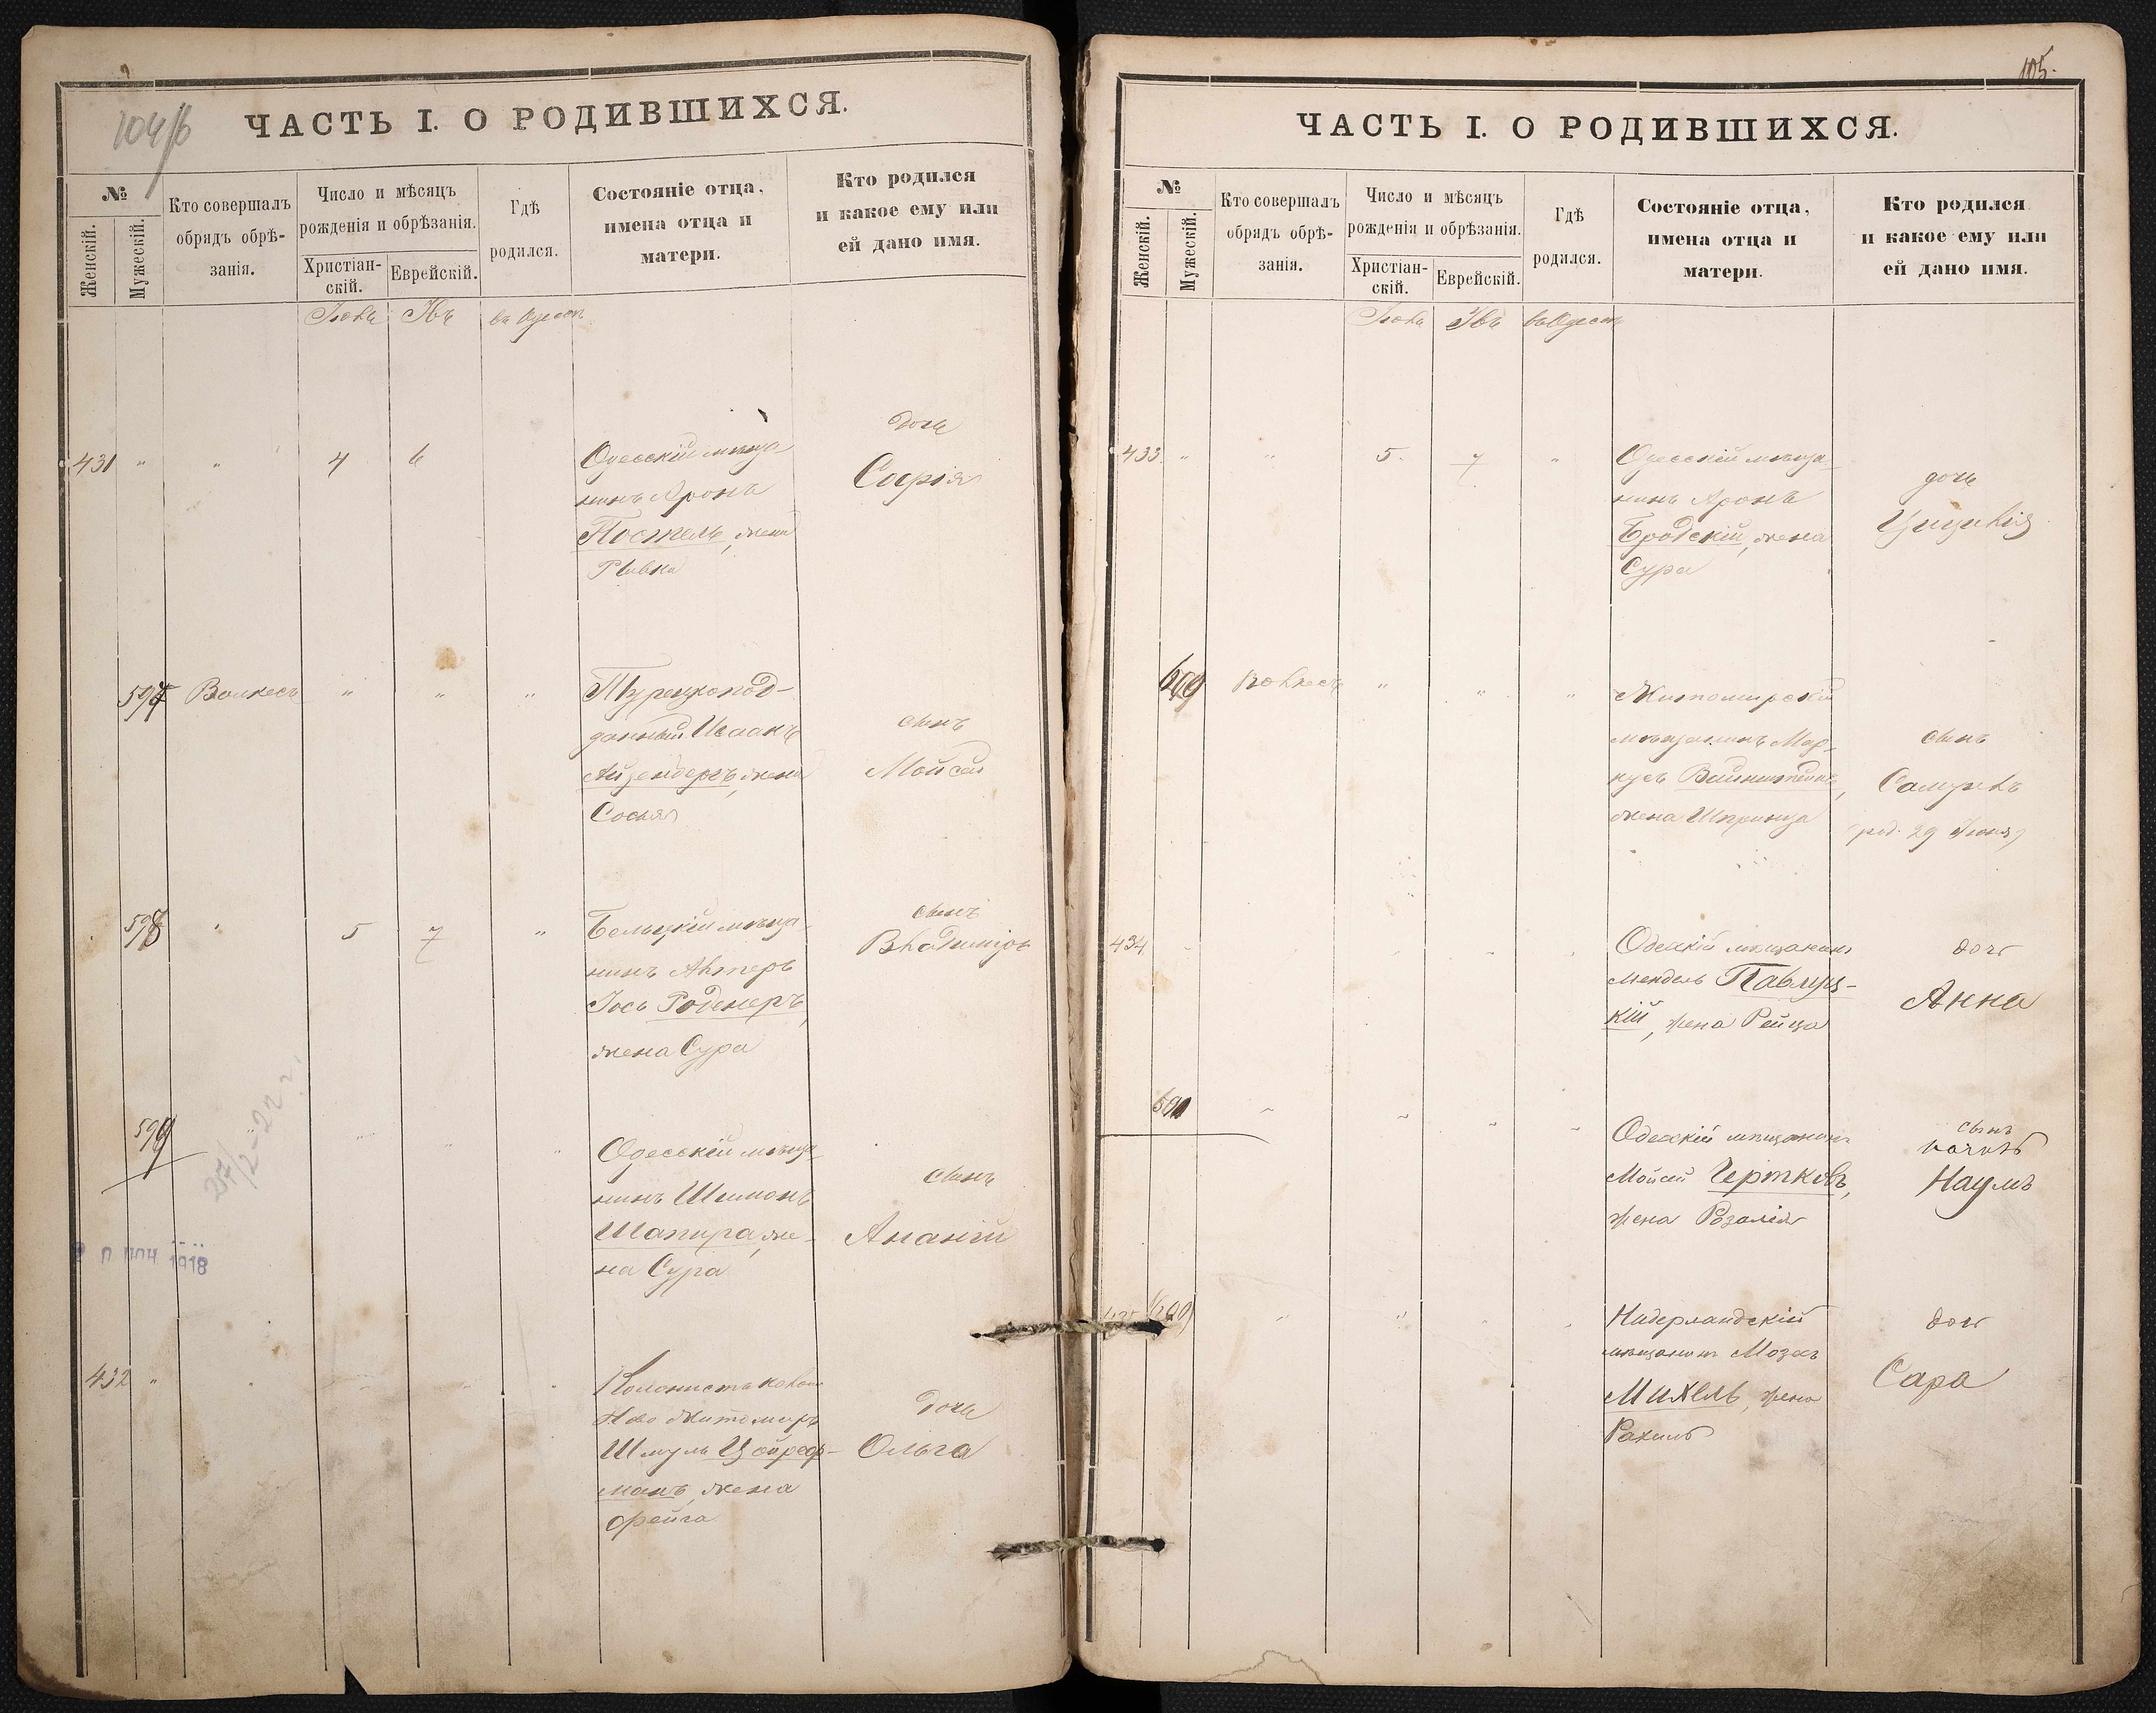 104/б
ЧАСТЬ I. О РОДИВШИХСЯ.
№
Женскій.
Мужескій.
Кто совершалъ
обрядъ обрѣ-
занія.
Число и мѣсяцъ
рожденія и обрѣзанія.
Христіан-
скій.
Еврейскій.
Гдѣ
родился.
Состояніе отца,
имена отца и
матери.
Кто родился
и какое ему или
ей дано имя.
Іюль
въ Одессѣ
431 " " 4 6
Одесскій мѣща
нинъ Аронъ
Постель, жена
Ривка
дочь
Софія
597 " " "
Турецкопод-
данный Исаакъ
Айзенбергъ, жена
Сося
сынъ
Мойсей
598 " 5 7 "
Бельцкій мѣща-
нинъ Альтеръ
Іось Роденеръ,
жена Сура
сынъ
Владиміръ
599
Одесскій мѣща
нинъ Шимонъ
Шапира, же-
на Сура
сынъ
Ананій
1918
432 "
Колонистъ колоніи
Ново Житомиръ
Шмуль Цойреф-
манъ, жена
Фейга
дочь
Ольга
105.
ЧАСТЬ I. О РОДИВШИХСЯ.
№
Женскій.
Мужескій.
Кто совершалъ
обрядъ обрѣ-
занія.
Число и мѣсяцъ
рожденія и обрѣзанія.
Христіан-
скій.
Еврейскій.
Гдѣ
родился.
Состояніе отца,
имена отца и
матери.
Кто родился
и какое ему или
ей дано имя.
Іюль
въ Одессѣ
433 " " 5. 7 "
Одесскій мѣща-
нинъ Аронъ
Бродскій, жена
Сура
дочь
Цицилія
" " "
Житомирскій
мѣщанинъ Мар-
кусъ Вайнштейнъ,
жена Шпринца
сынъ
Самуилъ
(род. 29 Іюня)
434
Одесскій мѣщанинъ
Мендель Павлуц-
кій, жена Рейза
дочь
Анна
Одесскій мѣщанинъ
Мойсей Чертковъ,
жена Розалія
сынъ
Наумъ
435
Нидерландскій
мѣщанинъ Мозесъ
Михель, жена
Рахиль
дочь
Сара